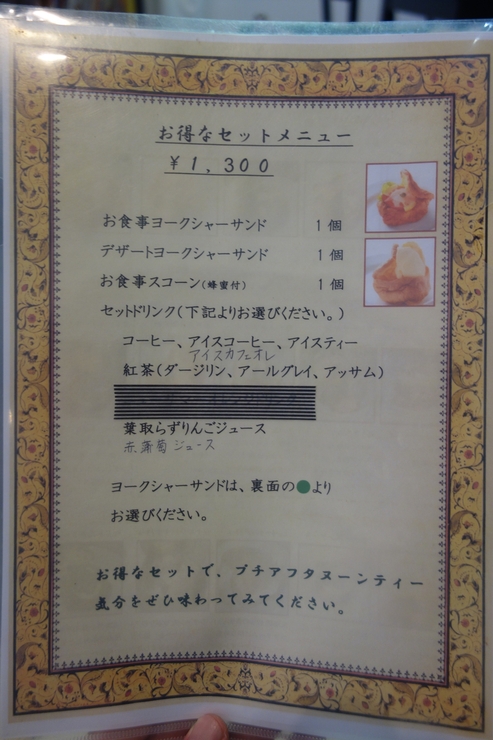 お得なセットメニュー
￥1,300
お食事ヨークシャーサンド 1個
デザートヨークシャーサンド 1個
お食事スコーン(蜂蜜付) 1個
セットドリンク(下記よりお選びください。)
コーヒー、アイスコーヒー、アイスティー
アイスカフェオレ
紅茶(ダージリン、アールグレイ、アッサム)
葉取らずりんごジュース
赤葡萄ジュース
ヨークシャーサンドは、裏面の●より
お選びください。
お得なセットで、プチアフタヌーンティー
気分をぜひ味わってみてください。